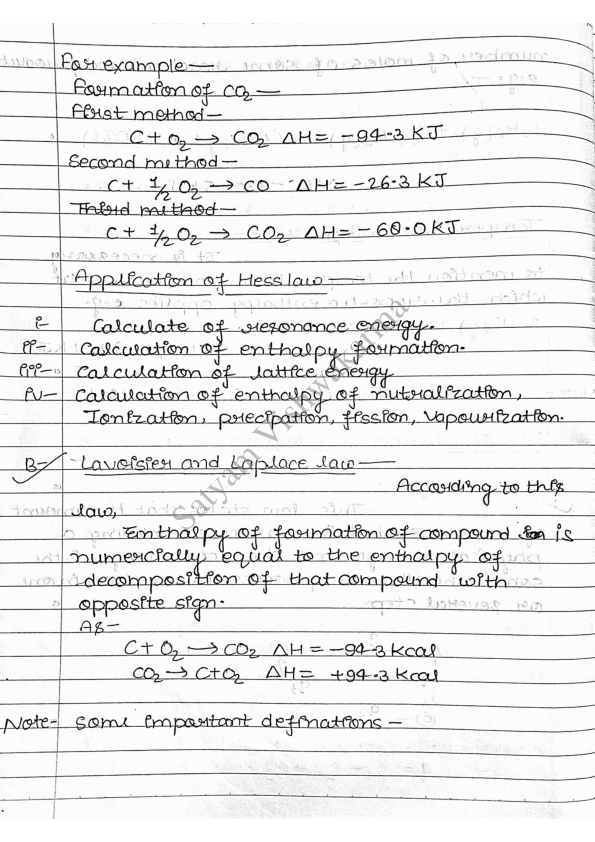 For example—
Formation of CO2 —
First method—
C + O2 → CO2 ΔH = -94.3 KJ
Second method—
C + 1/2 O2 → CO ΔH = -26.3 KJ
Third method—
C + 1/2 O2 → CO2 ΔH = -68.0 KJ
Application of Hess law —
i- Calculate of resonance energy.
ii- Calculation of enthalpy formation.
iii- Calculation of lattice energy
iv- Calculation of enthalpy of nutralization,
Ionization, precipation, fission, Vapourization.
B- Lavoisier and Laplace law —
According to this
law,
Enthalpy of formation of compound is
numercially equal to the enthalpy of
decomposition of that compound with
opposite sign.
As-
C + O2 → CO2 ΔH = -94.3 Kcal
CO2 → C+O2 ΔH = +94.3 Kcal
Note- Some important definations —
Satyam Vishwakarma